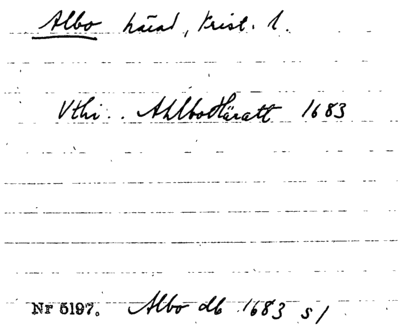 Albo härad, Krist. l.
Vthi.. Ahlbo Häratt 1683
Nr 5197. Albo db 1683 s 1